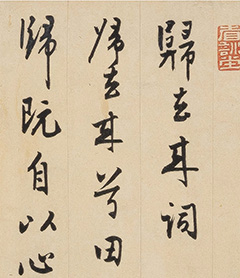 歸去來詞
歸去來兮田
歸既自以心